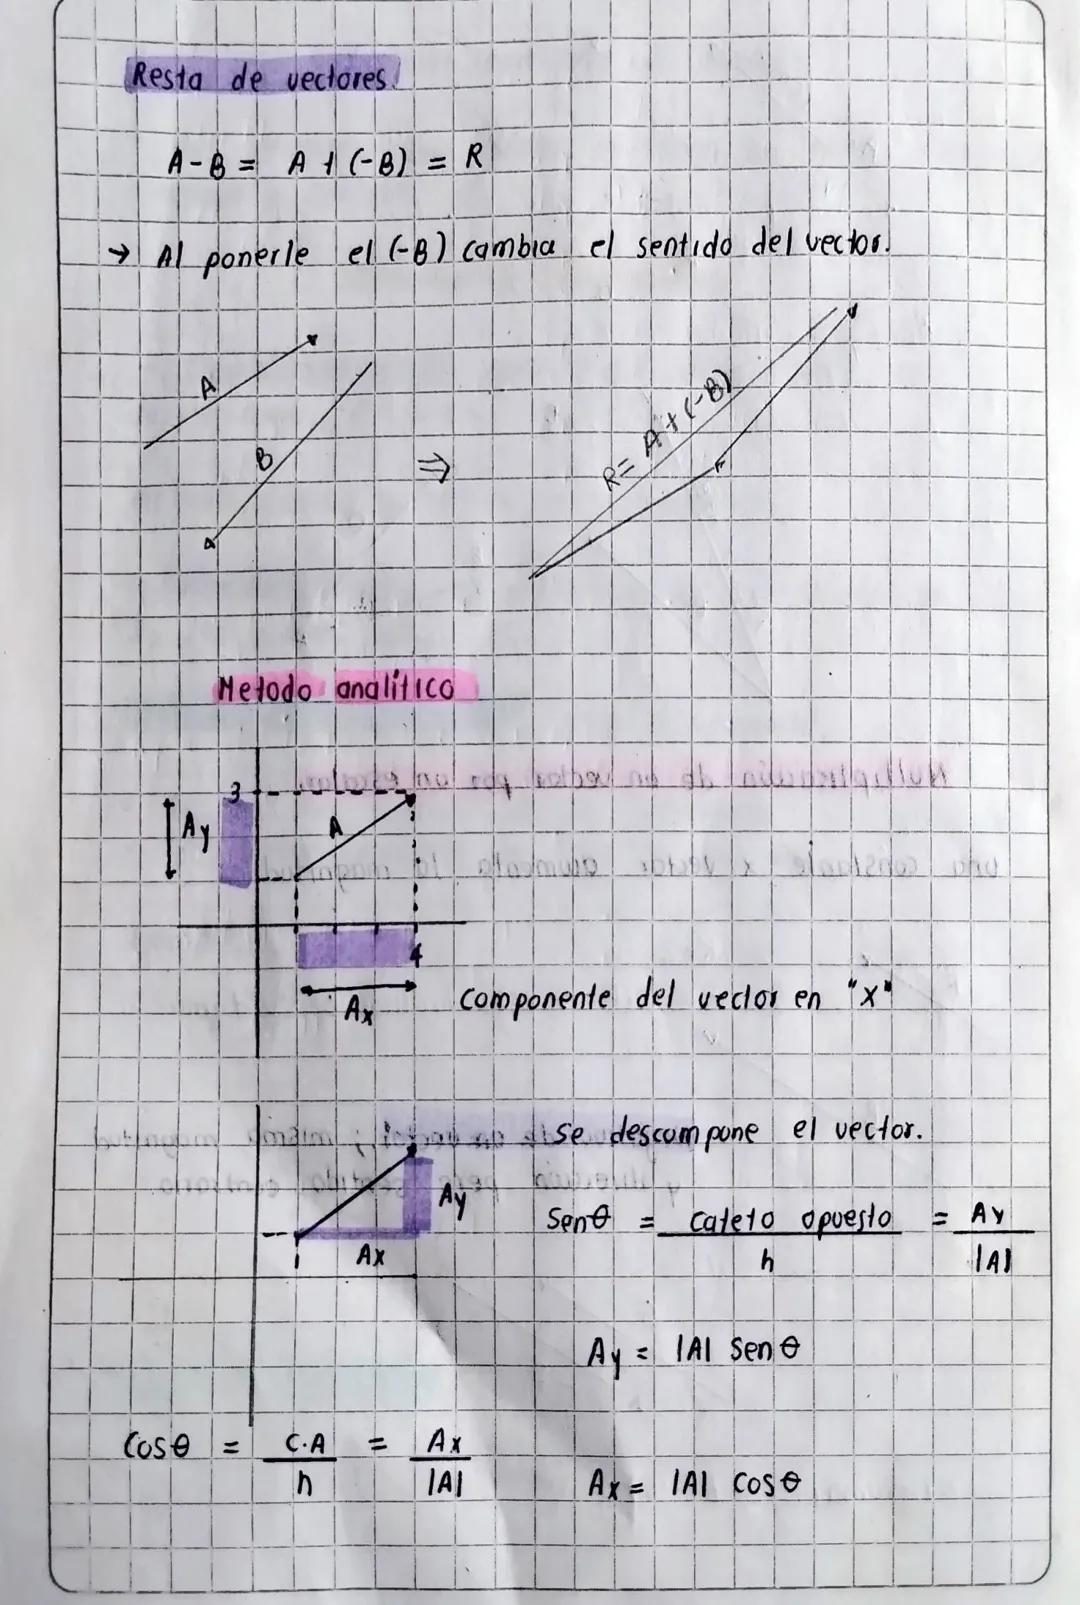 Resta de vectores.
A-B = A + (-B) = R
→ Al ponerle el (-B) cambia el sentido del vector.
A
B
⇒
R = A + (-B)
Metodo analítico
3
Ay
A
4
Ax
Componente del vector en "X"
Se descompone el vector.
Ay
Ax
Senθ = cateto opuesto / h = Ay / |A|
Ay = |A| Senθ
Cosθ = C.A / h = Ax / |A|
Ax = |A| Cosθ